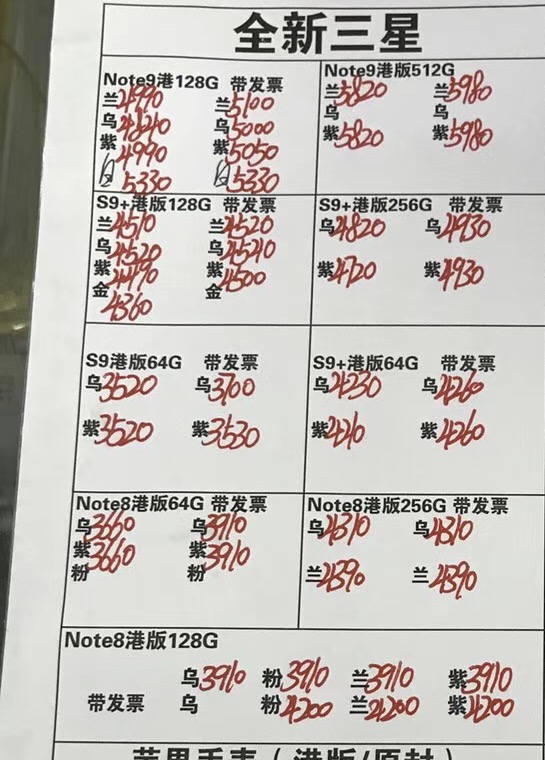 全新三星
Note9港128G 带发票
兰4990 兰5100
乌4840 乌5000
紫4990 紫5050
白5330 白5330
Note9港版512G
兰5820 兰5980
乌 乌
紫5820 紫5980
S9+港版128G 带发票
兰4510 兰4520
乌4520 乌4540
紫4490 紫4500
金4360 金
S9+港版256G 带发票
乌4820 乌4930
紫4720 紫4930
S9港版64G 带发票
乌3520 乌3700
紫3520 紫3530
S9+港版64G 带发票
乌4230 乌4260
紫4210 紫4260
Note8港版64G 带发票
乌3660 乌3910
紫3660 紫3910
粉 粉
Note8港版256G 带发票
乌4310 乌4310
兰4390 兰4390
Note8港版128G
乌3910 粉3910 兰3910 紫3910
带发票 乌 粉4200 兰4200 紫4200
苹果手表(港版/原封)